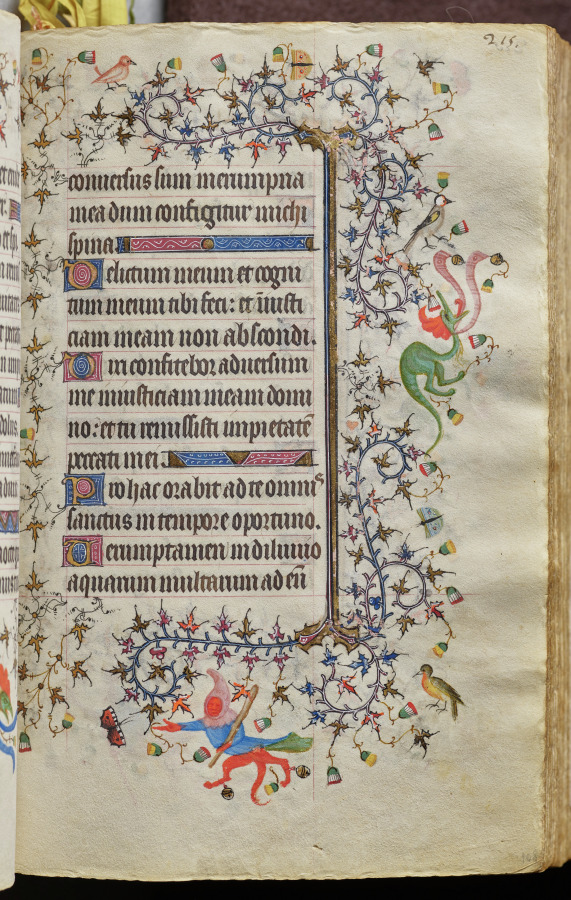 215.
conuersus sum in erumpna
mea dum configitur michi
spina
Delictum meum et cogni
tum meum tibi feci: et iniusti
ciam meam non abscondi.
Dixi confitebor aduersum
me iniusticiam meam domi
no: et tu remisisti impietatē
peccati mei
Pro hac orabit ad te omnis
sanctus in tempore oportuno.
Uerumptamen in diluuio
aquarum multarum ad eū